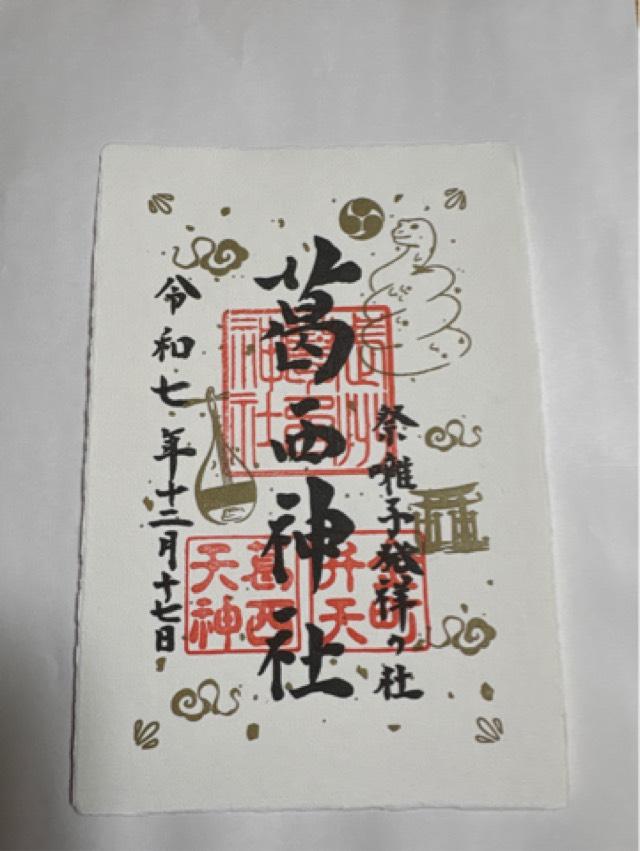 祭雅子発祥ヶ社
葛西神社
令和七年十二月十七日
葛西
天神
金町
弁天